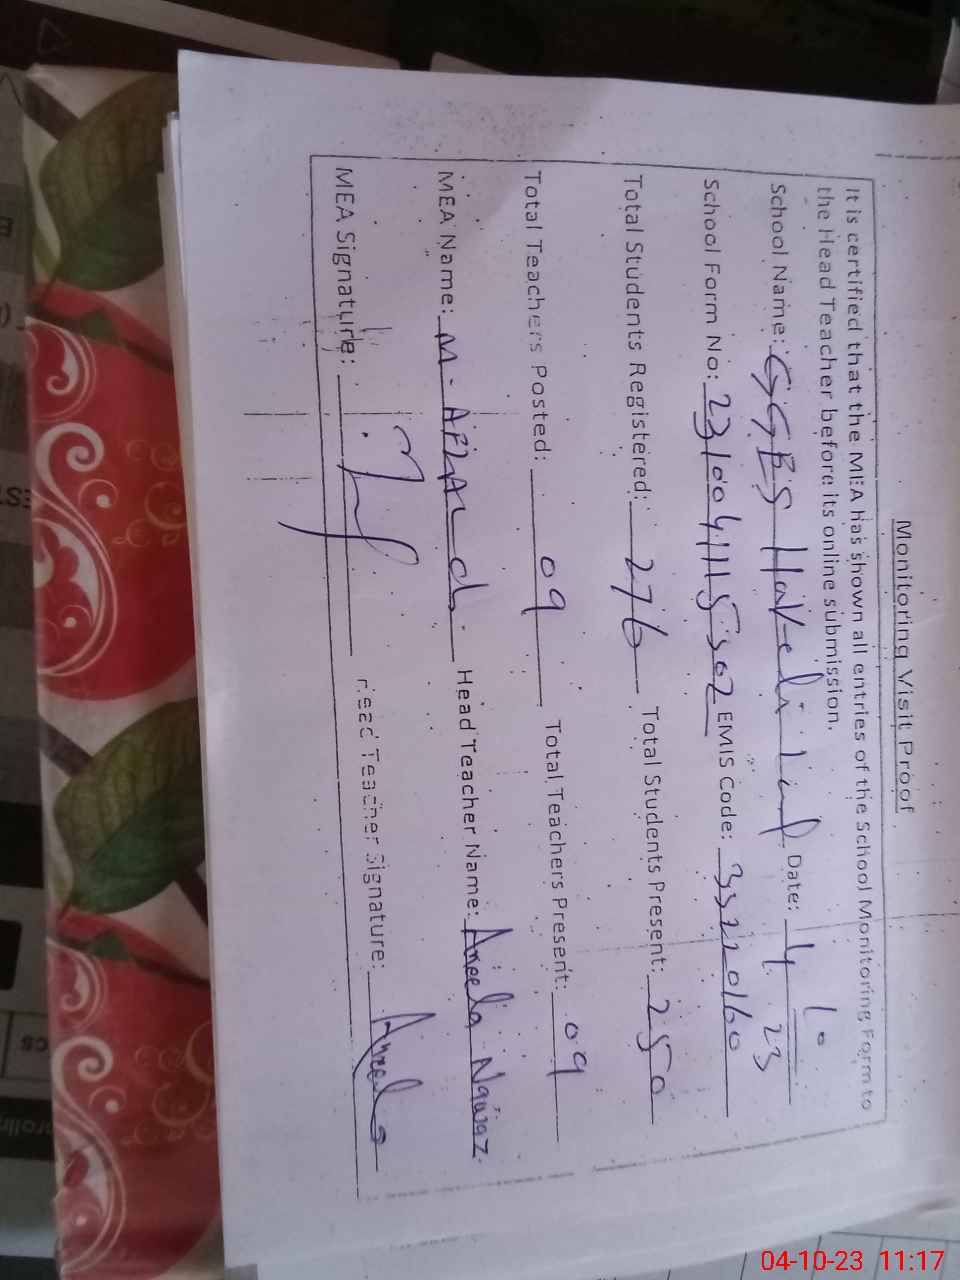 Monitoring Visit Proof
It is certified that the MEA has shown all entries of the School Monitoring Form to
the Head Teacher before its online submission.
School Name: GGES Haveli Lal Date: 4 10 23
School Form No: EMIS Code: 33220160
Total Students Registered: 276 Total Students Present: 250
Total Teachers Posted: 09 Total Teachers Present: 09
MEA Name: M. Head Teacher Name: Aneela Nawaz.
MEA Signature: Head Teacher Signature: Aneela
04-10-23 11:17